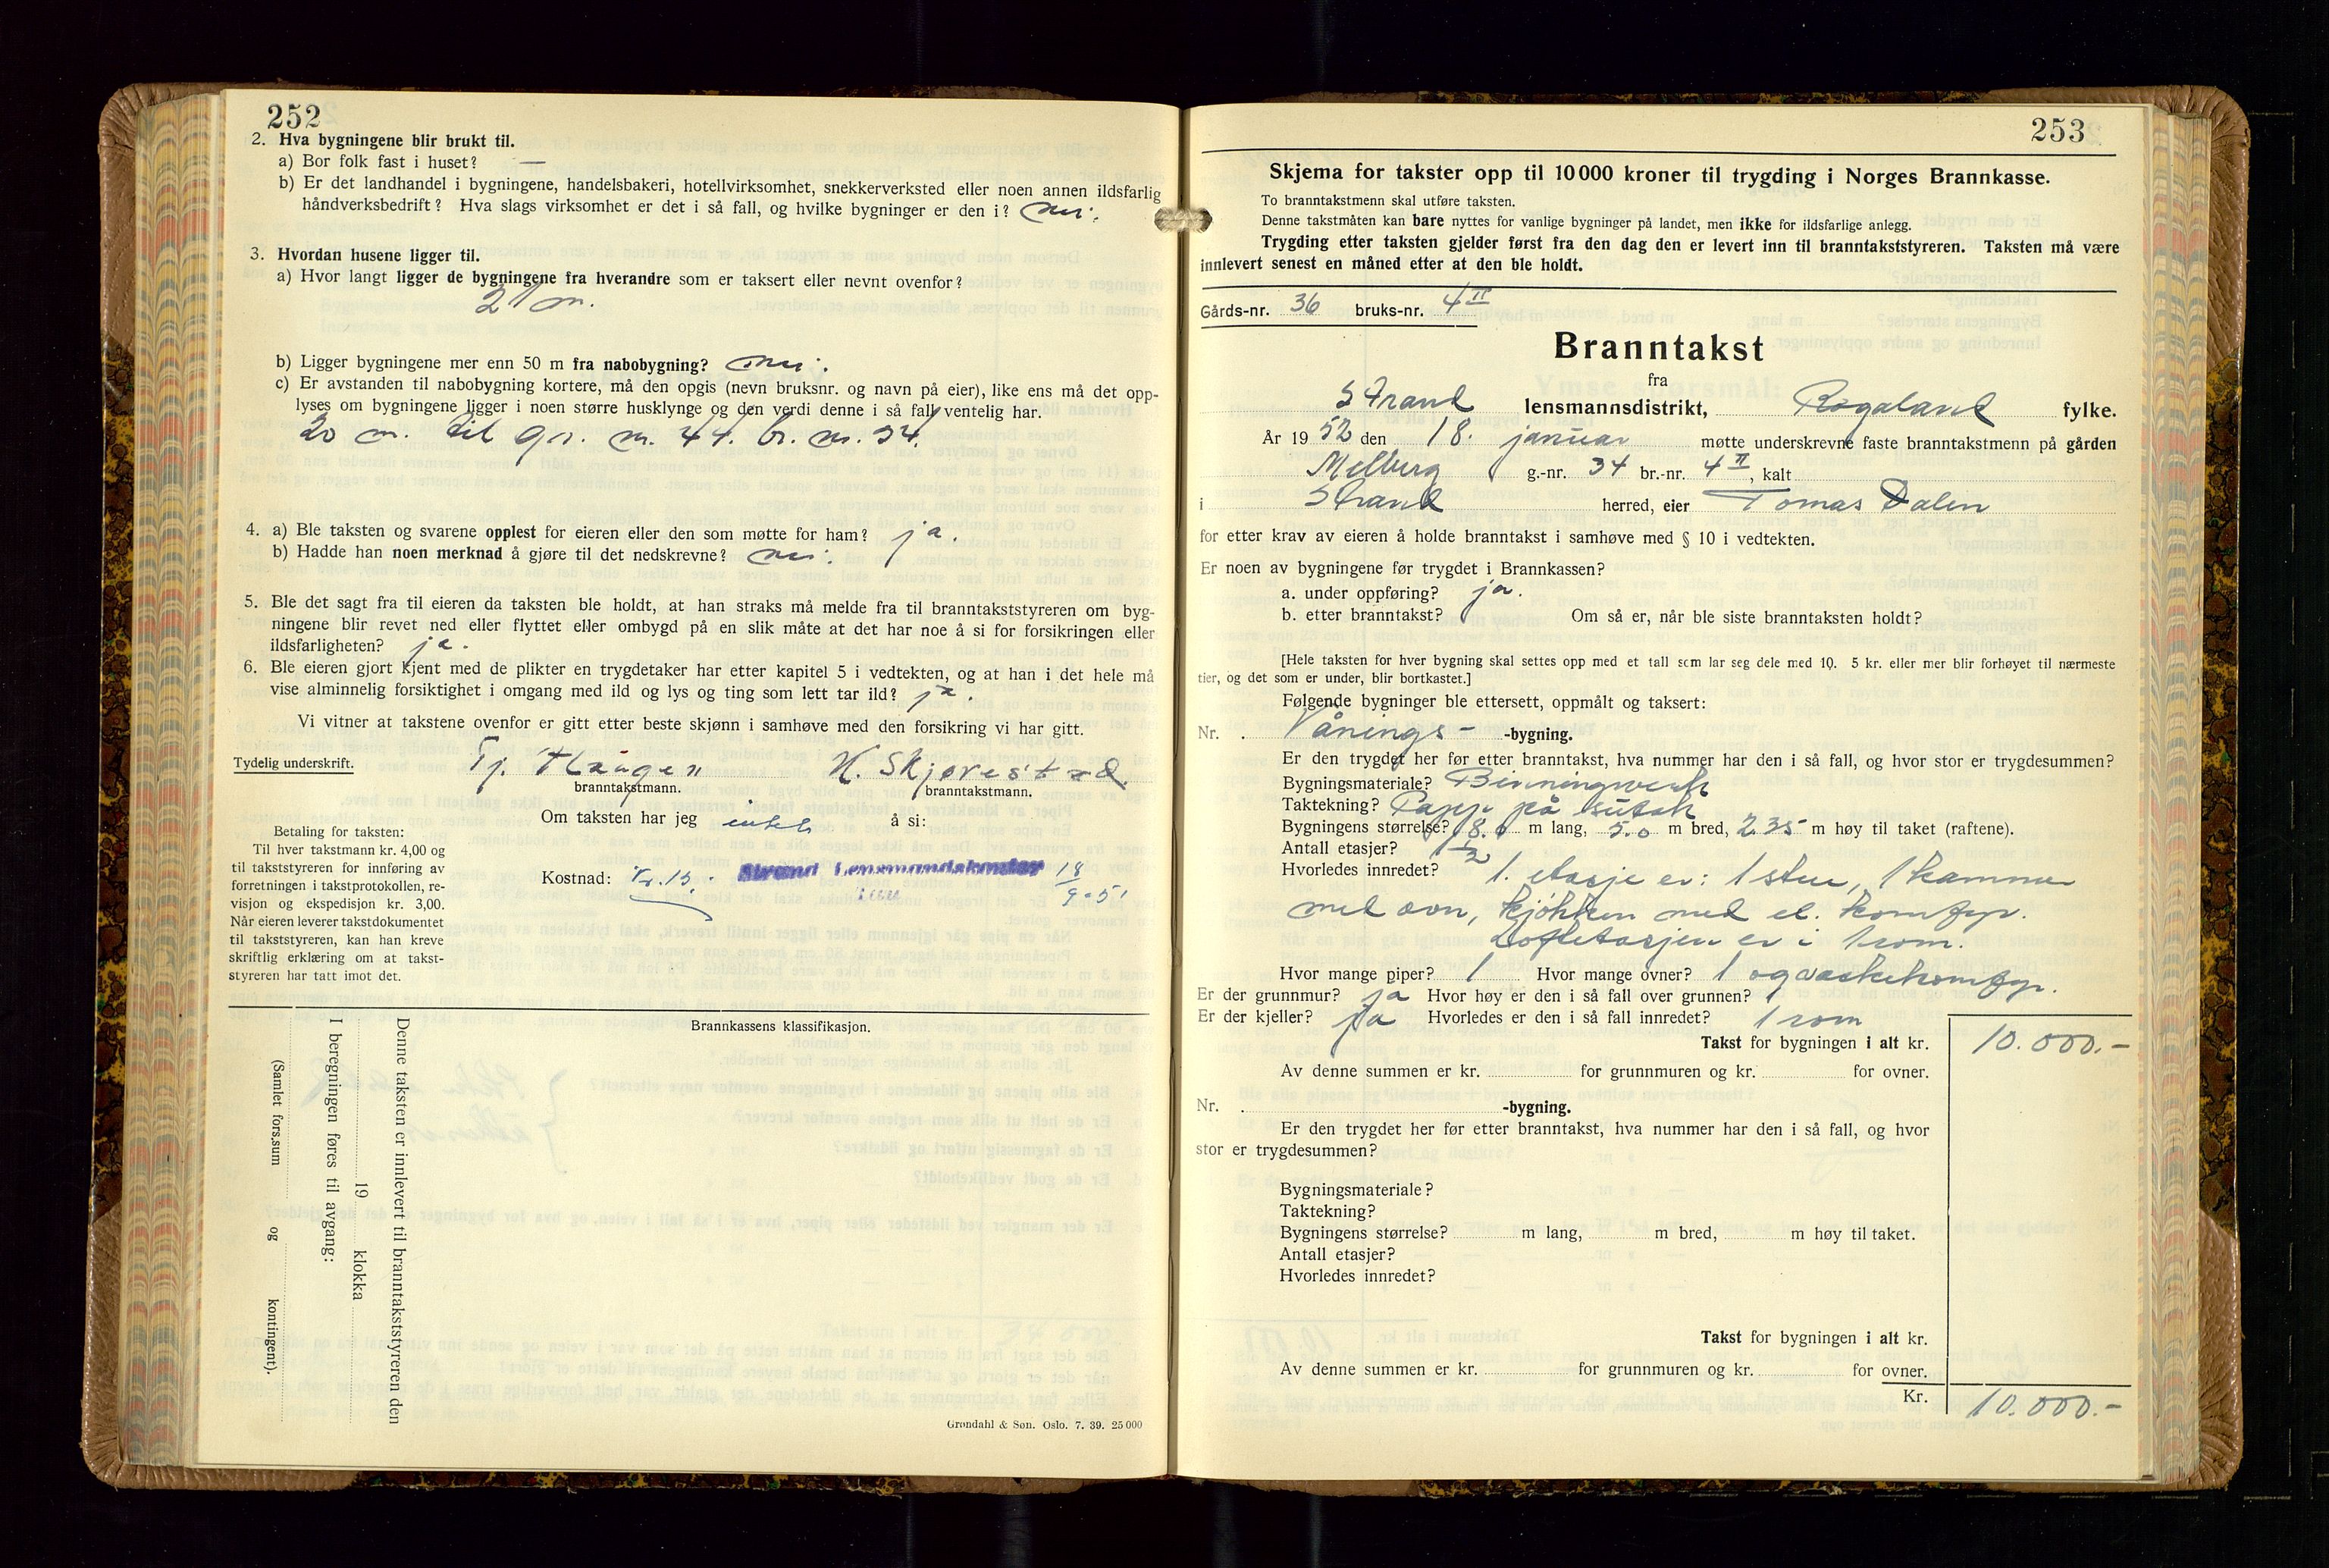 252
2. Hva bygningene blir brukt til.
a) Bor folk fast i huset? —
b) Er det landhandel i bygningene, handelsbakeri, hotellvirksomhet, snekkerverksted eller noen annen ildsfarlig
håndverksbedrift? Hva slags virksomhet er det i så fall, og hvilke bygninger er den i? nei.
3. Hvordan husene ligger til.
a) Hvor langt ligger de bygningene fra hverandre som er taksert eller nevnt ovenfor?
21 m.
b) Ligger bygningene mer enn 50 m fra nabobygning? nei.
c) Er avstanden til nabobygning kortere, må den opgis (nevn bruksnr. og navn på eier), like ens må det opp-
lyses om bygningene ligger i noen større husklynge og den verdi denne i så fall ventelig har.
20 m. til gr. nr. 44. br. nr. 34.
4. a) Ble taksten og svarene opplest for eieren eller den som møtte for ham? ja.
b) Hadde han noen merknad å gjøre til det nedskrevne? nei.
5. Ble det sagt fra til eieren da taksten ble holdt, at han straks må melde fra til branntakststyreren om byg-
ningene blir revet ned eller flyttet eller ombygd på en slik måte at det har noe å si for forsikringen eller
ildsfarligheten? ja.
6. Ble eieren gjort kjent med de plikter en trygdetaker har etter kapitel 5 i vedtekten, og at han i det hele må
vise alminnelig forsiktighet i omgang med ild og lys og ting som lett tar ild? ja.
Vi vitner at takstene ovenfor er gitt etter beste skjønn i samhøve med den forsikring vi har gitt.
Tydelig underskrift. Tj. Haugen H. Skjørestad
branntakstmann. branntakstmann.
Om taksten har jeg intet å si:
Kostnad: kr. 13. Strand Lensmannskontor 18/9-51
Betaling for taksten:
Til hver takstmann kr. 4,00 og
til takststyreren for innføring av
forretningen i takstprotokollen, re-
visjon og ekspedisjon kr. 3,00.
Når eieren leverer takstdokumentet
til takststyreren, kan han kreve
skriftlig erklæring om at takst-
styreren har tatt imot det.
Brannkassens klassifikasjon.
Denne taksten er innlevert til branntakststyreren den
19 klokka
I beregningen føres til avgang:
(Samlet fors.sum og kontingent).
Grøndahl & Søn. Oslo. 7. 39. 25 000
253
Skjema for takster opp til 10 000 kroner til trygding i Norges Brannkasse.
To branntakstmenn skal utføre taksten.
Denne takstmåten kan bare nyttes for vanlige bygninger på landet, men ikke for ildsfarlige anlegg.
Trygding etter taksten gjelder først fra den dag den er levert inn til branntakststyreren. Taksten må være
innlevert senest en måned etter at den ble holdt.
Gårds-nr. 36 bruks-nr. 4 II
Branntakst
fra
Strand lensmannsdistrikt, Rogaland fylke.
År 1952 den 18. januar møtte underskrevne faste branntakstmenn på gården
Melberg g.-nr. 34 br.-nr. 4 II, kalt
i Strand herred, eier Tomas Dalen
for etter krav av eieren å holde branntakst i samhøve med § 10 i vedtekten.
Er noen av bygningene før trygdet i Brannkassen?
a. under oppføring? ja.
b. etter branntakst? Om så er, når ble siste branntaksten holdt?
[Hele taksten for hver bygning skal settes opp med et tall som lar seg dele med 10. 5 kr. eller mer blir forhøyet til nærmeste
tier, og det som er under, blir bortkastet.]
Følgende bygninger ble ettersett, oppmålt og taksert:
Nr. . Vånings- -bygning.
Er den trygdet her før etter branntakst, hva nummer har den i så fall, og hvor stor er trygdesummen?
Bygningsmateriale? Binningverk
Taktekning? Papp på sutak
Bygningens størrelse? 8.0 m lang, 5.0 m bred, 2.35 m høy til taket (raftene).
Antall etasjer? 1 1/2
Hvorledes innredet? 1. etasje er: 1 stue, 1 kammer
med ovn, kjøkken med el. komfyr.
Loftetasjen er i 1 rom.
Hvor mange piper? 1 Hvor mange ovner? 1 og vaskekomfyr.
Er der grunnmur? ja Hvor høy er den i så fall over grunnen? 1
Er der kjeller? ja Hvorledes er den i så fall innredet? 1 rom
Takst for bygningen i alt kr. 10.000.-
Av denne summen er kr. for grunnmuren og kr. for ovner.
Nr. . -bygning.
Er den trygdet her før etter branntakst, hva nummer har den i så fall, og hvor
stor er trygdesummen?
Bygningsmateriale?
Taktekning?
Bygningens størrelse? m lang, m bred, m høy til taket.
Antall etasjer?
Hvorledes innredet?
Takst for bygningen i alt kr.
Av denne summen er kr. for grunnmuren og kr. for ovner.
Kr. 10.000.-